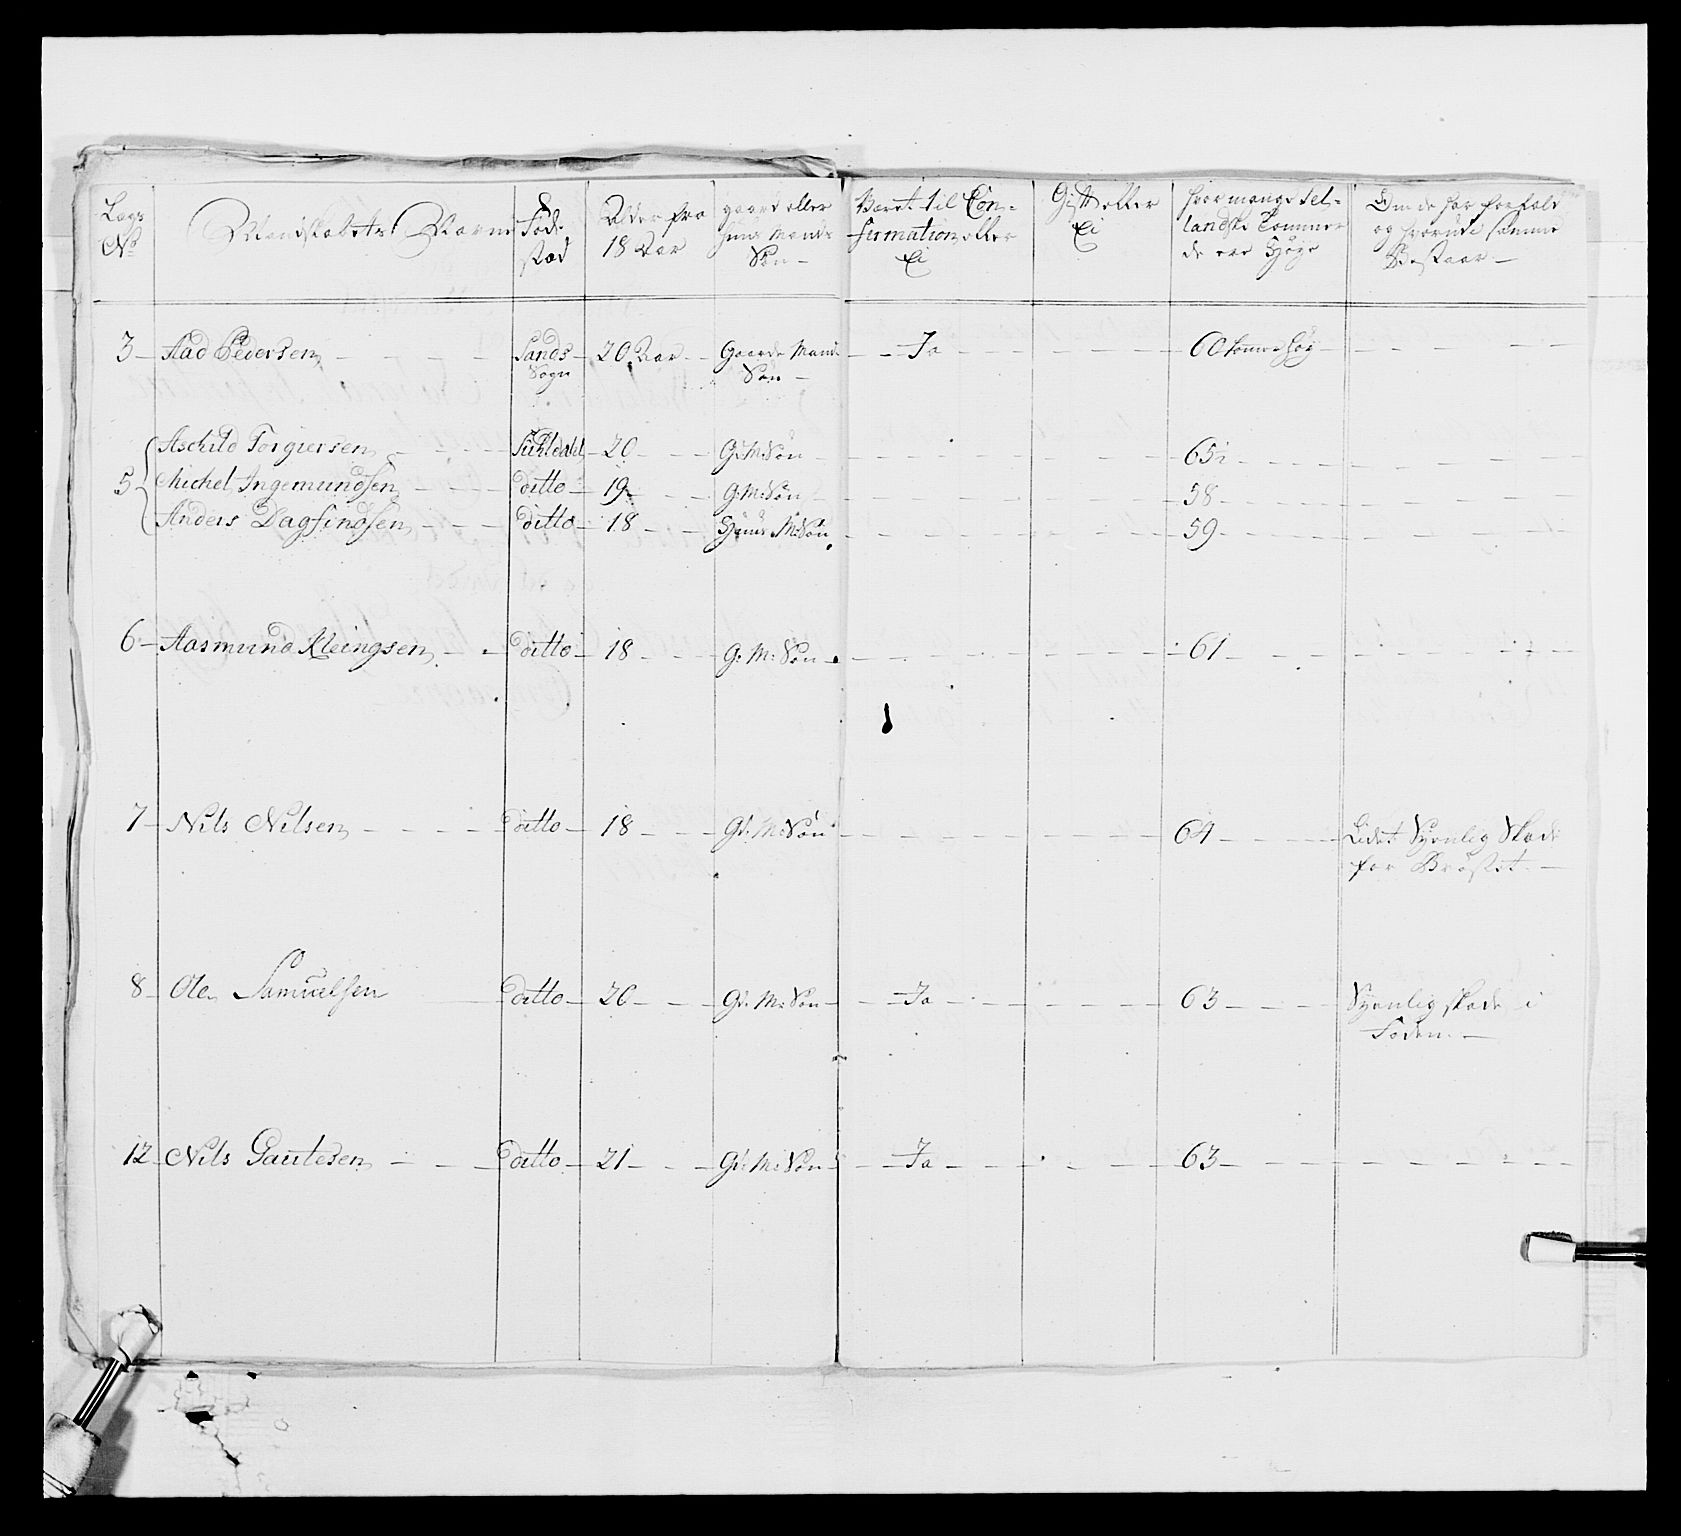 Legs No | Mandskabets Navne | Føde stæd | Alder fra 18 Aar | gaard eller huus Mands Søn | Været til Confirmation eller Ei | Gift eller Ei | hvor mange Sellandske Tommer de ere Høye | Om de har forfald og hvorudi samme Bestaar
3 Aad Pedersen | Sands Sogn | 20 Aar | Gaards Mands Søn | Ja | 60 tomer høy
5 Aschild Torgiersen | Suhldahl | 20 | G: M: Søn | 65
Michel Ingemundsen | ditto | 19 | G: M: Søn | 58
Anders Dagfindsen | ditto | 18 | Huus M: Søn | 59
6 Aasmund Kleingsen | ditto | 18 | G: M: Søn | 61
7 Nils Nilsen | ditto | 18 | G: M: Søn | 64 | Lidet Synlig Skade for Brøstet
8 Ole Samuelsen | ditto | 20 | G: M: Søn | Ja | 63 | Synlig skade i Foden
12 Nils Gautesen | ditto | 21 | G: M: Søn | Ja | 63